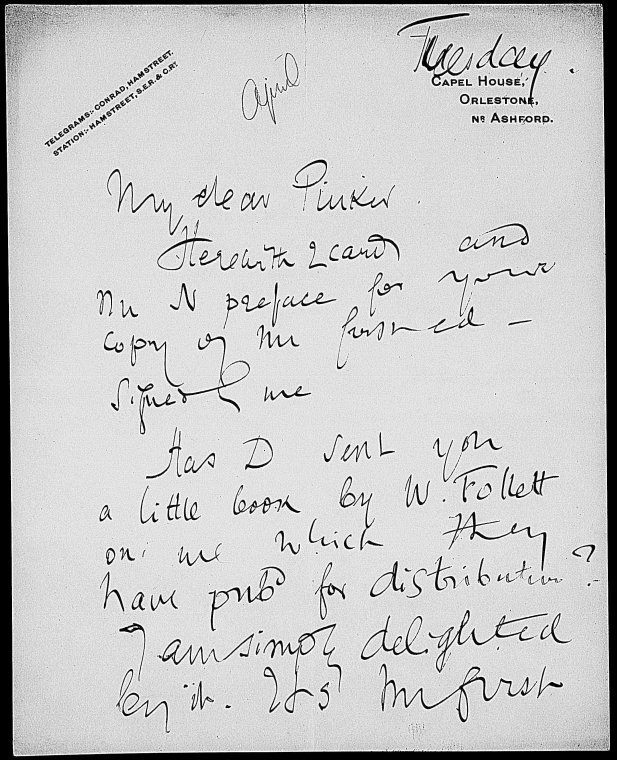 TELEGRAMS:- CONRAD, HAMSTREET.
STATION:- HAMSTREET, S.E.R. & C.RY.
April
Tuesday.
CAPEL HOUSE,
ORLESTONE,
NR ASHFORD.
My dear Pinker.
Herewith 2 cards and
the N preface for your
copy of the first ed –
signed by me
Has D sent you
a little book by W. Follett
on me which they
have pubd for distribution?
I am simply delighted
by it. It's the first